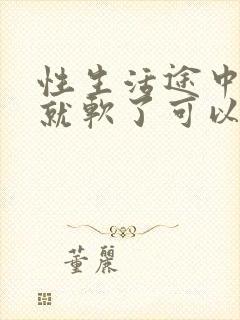 性生活途中
就軟了可以
董麗